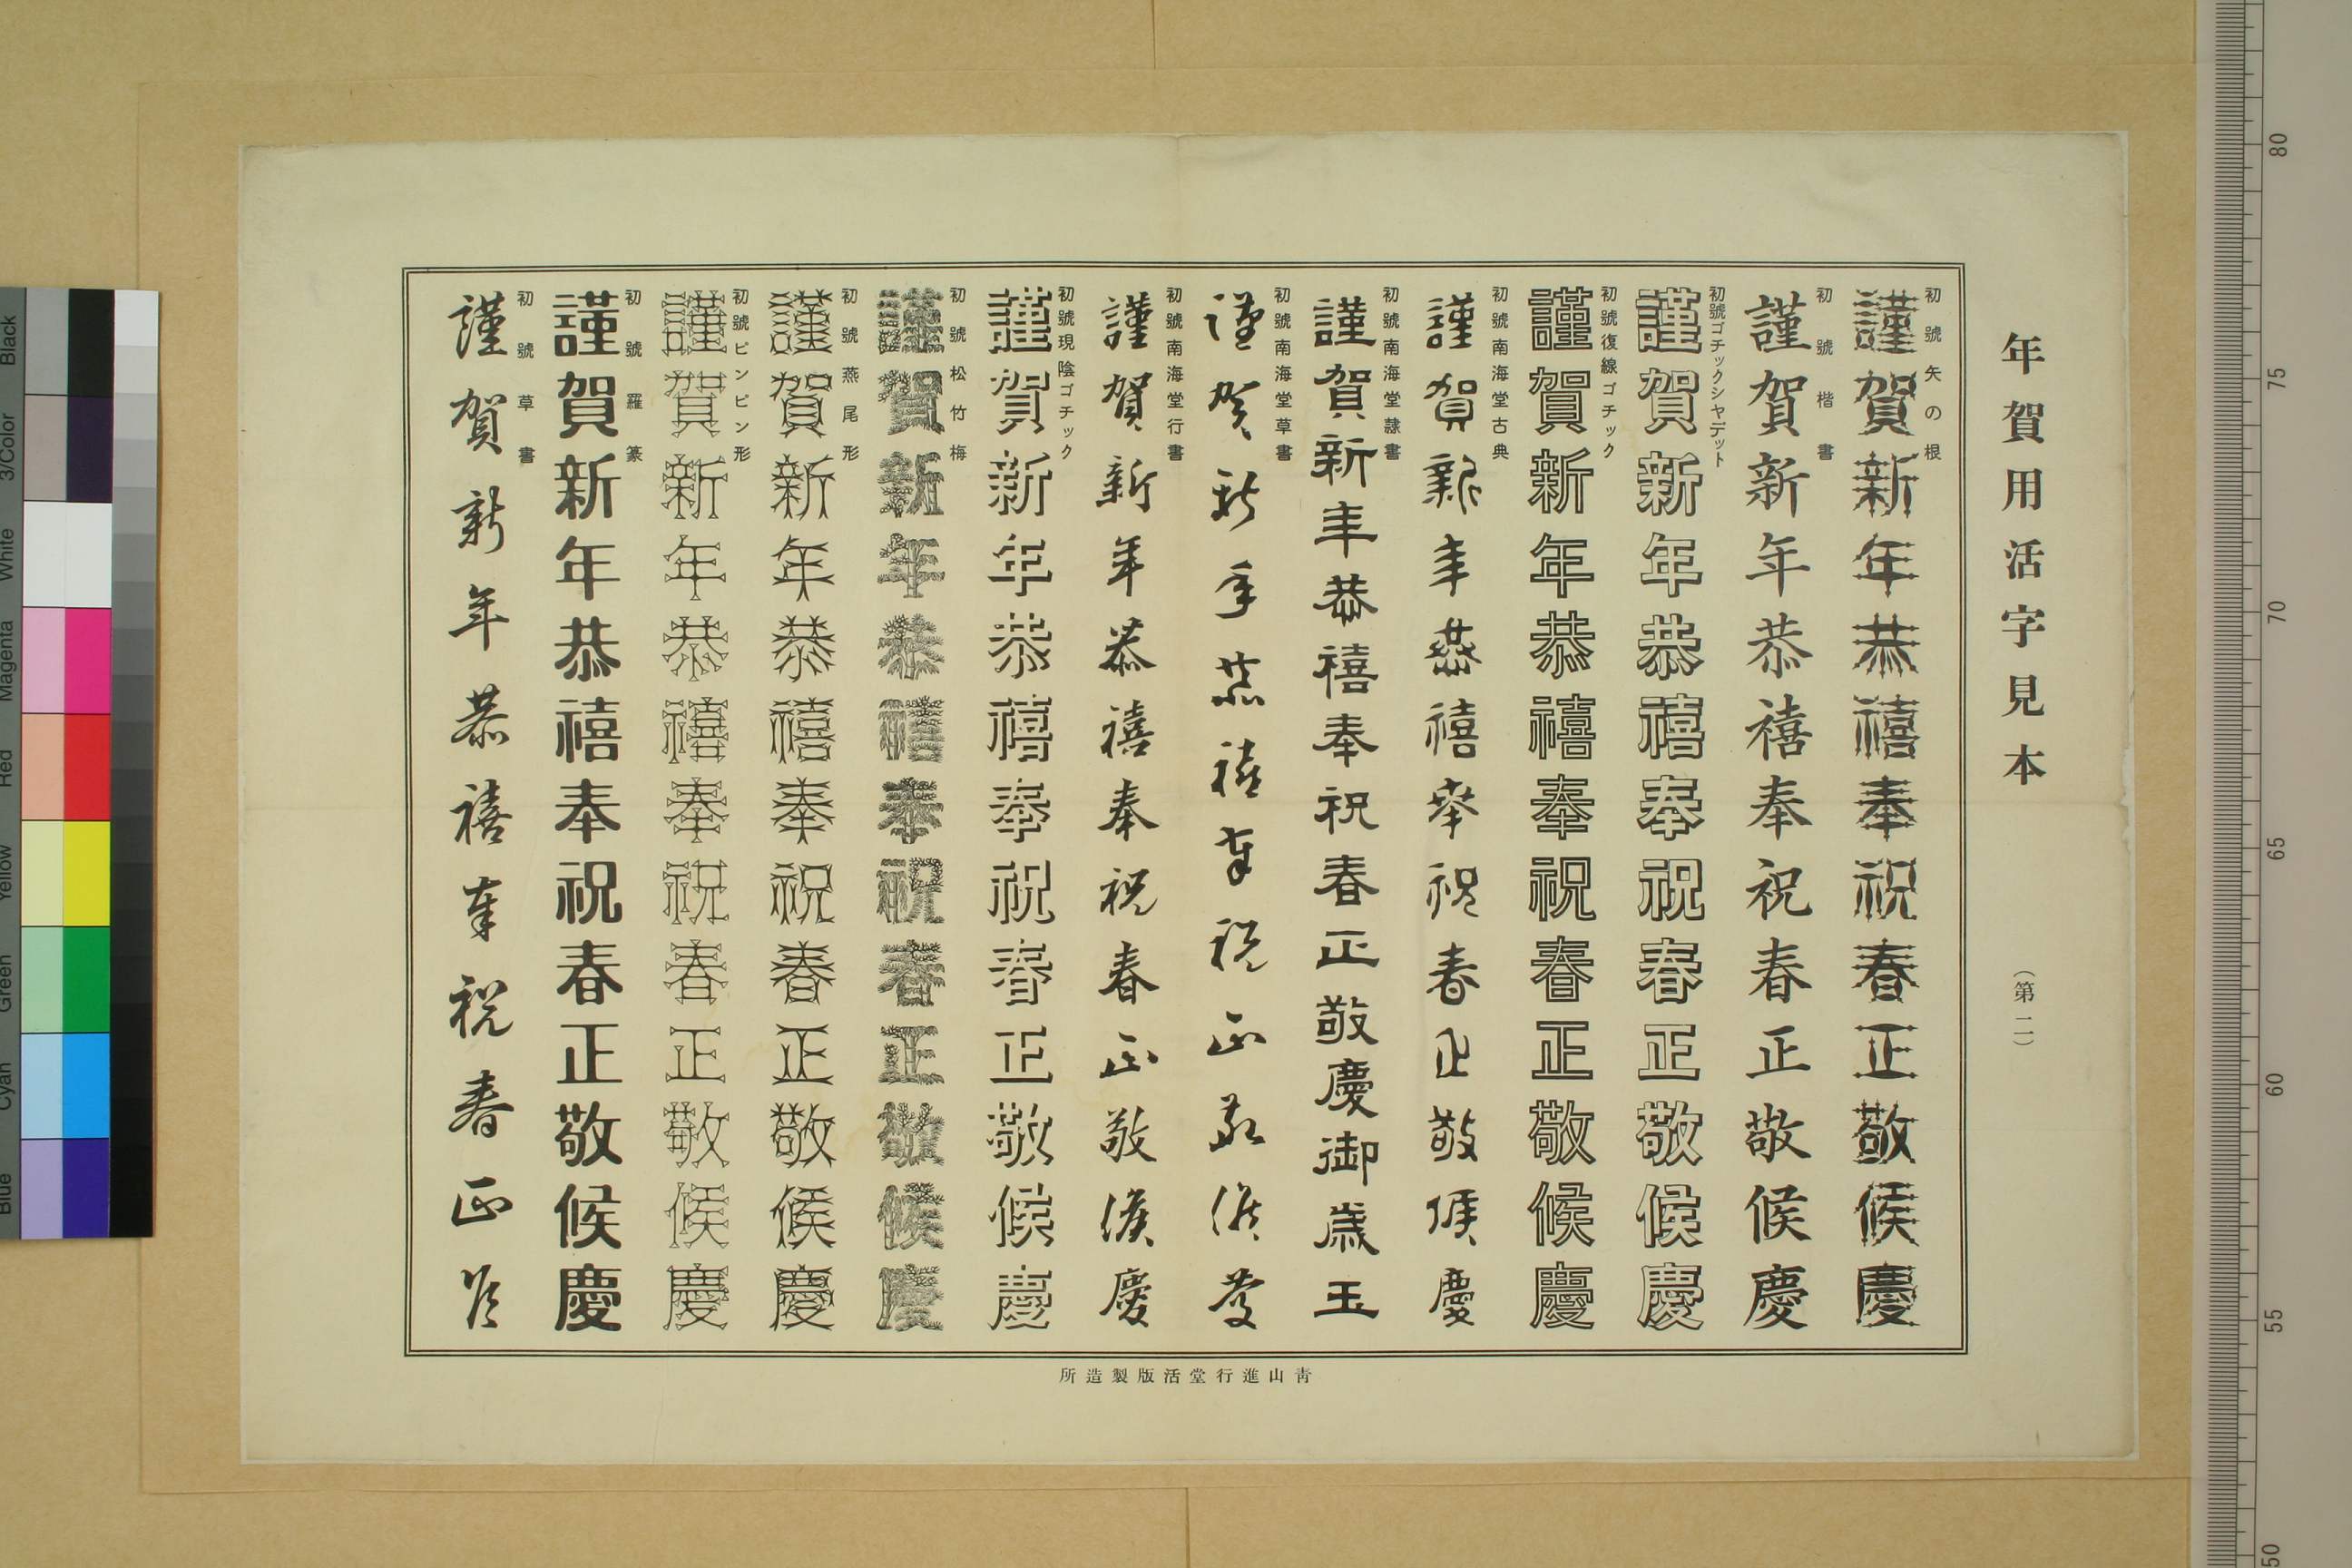 年賀用活字見本
（第二）
初號矢の根
謹賀新年恭禧奉祝春正敬候慶
初號楷書
謹賀新年恭禧奉祝春正敬候慶
初號ゴチックシヤデット
謹賀新年恭禧奉祝春正敬候慶
初號復線ゴチック
謹賀新年恭禧奉祝春正敬候慶
初號南海堂古典
謹賀新年恭禧奉祝春正敬候慶
初號南海堂隷書
謹賀新年恭禧奉祝春正敬慶御歳玉
初號南海堂草書
謹賀新年恭禧奉祝正敬候慶
初號南海堂行書
謹賀新年恭禧奉祝春正敬候慶
初號現陰ゴチック
謹賀新年恭禧奉祝春正敬候慶
初號松竹梅
謹賀新年恭禧奉祝春正敬候慶
初號燕尾形
謹賀新年恭禧奉祝春正敬候慶
初號ピンピン形
謹賀新年恭禧奉祝春正敬候慶
初號羅篆
謹賀新年恭禧奉祝春正敬候慶
初號草書
謹賀新年恭禧奉祝春正
青山進行堂活版製造所
Black
3/Color
White
Magenta
Red
Yellow
Green
Cyan
Blue
80
75
70
65
60
55
50